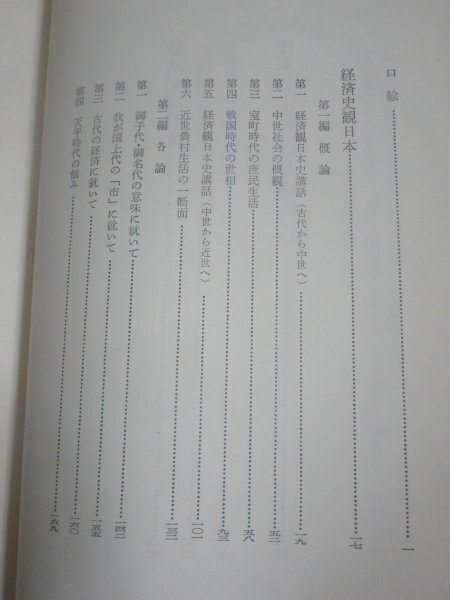 口絵……一
経済史観日本……一七
第一編 概論
第一 経済観日本史講話(古代から中世へ)……一九
第二 中世社会の概観……五二
第三 室町時代の庶民生活……五八
第四 戦国時代の世相……九三
第五 経済観日本史講話(中世から近世へ)……一〇一
第六 近世農村生活の一断面……一三三
第二編 各論
第一 御子代・御名代の意味に就いて……一四二
第二 我が国上代の「市」に就いて……一五五
第三 古代の経済に就いて……一六〇
第四 天平時代の悩み……一六九